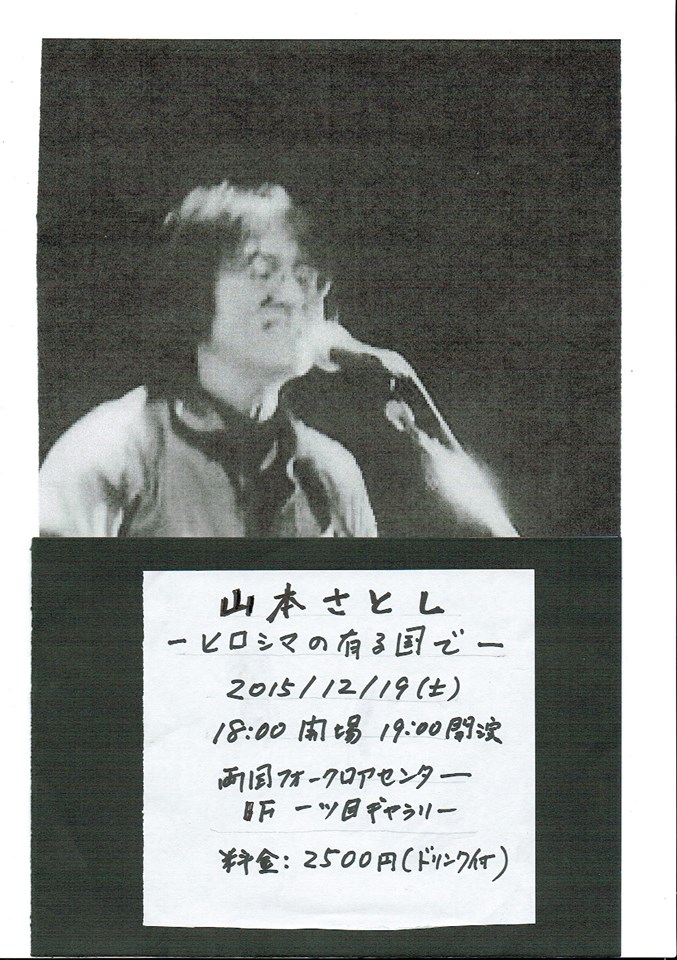 山本さとし
ーヒロシマの有る国でー
2015/12/19(土)
18:00 開場 19:00開演
両国フォークロアセンター
BF 一ツ目ギャラリー
料金: 2500円(ドリンク付)